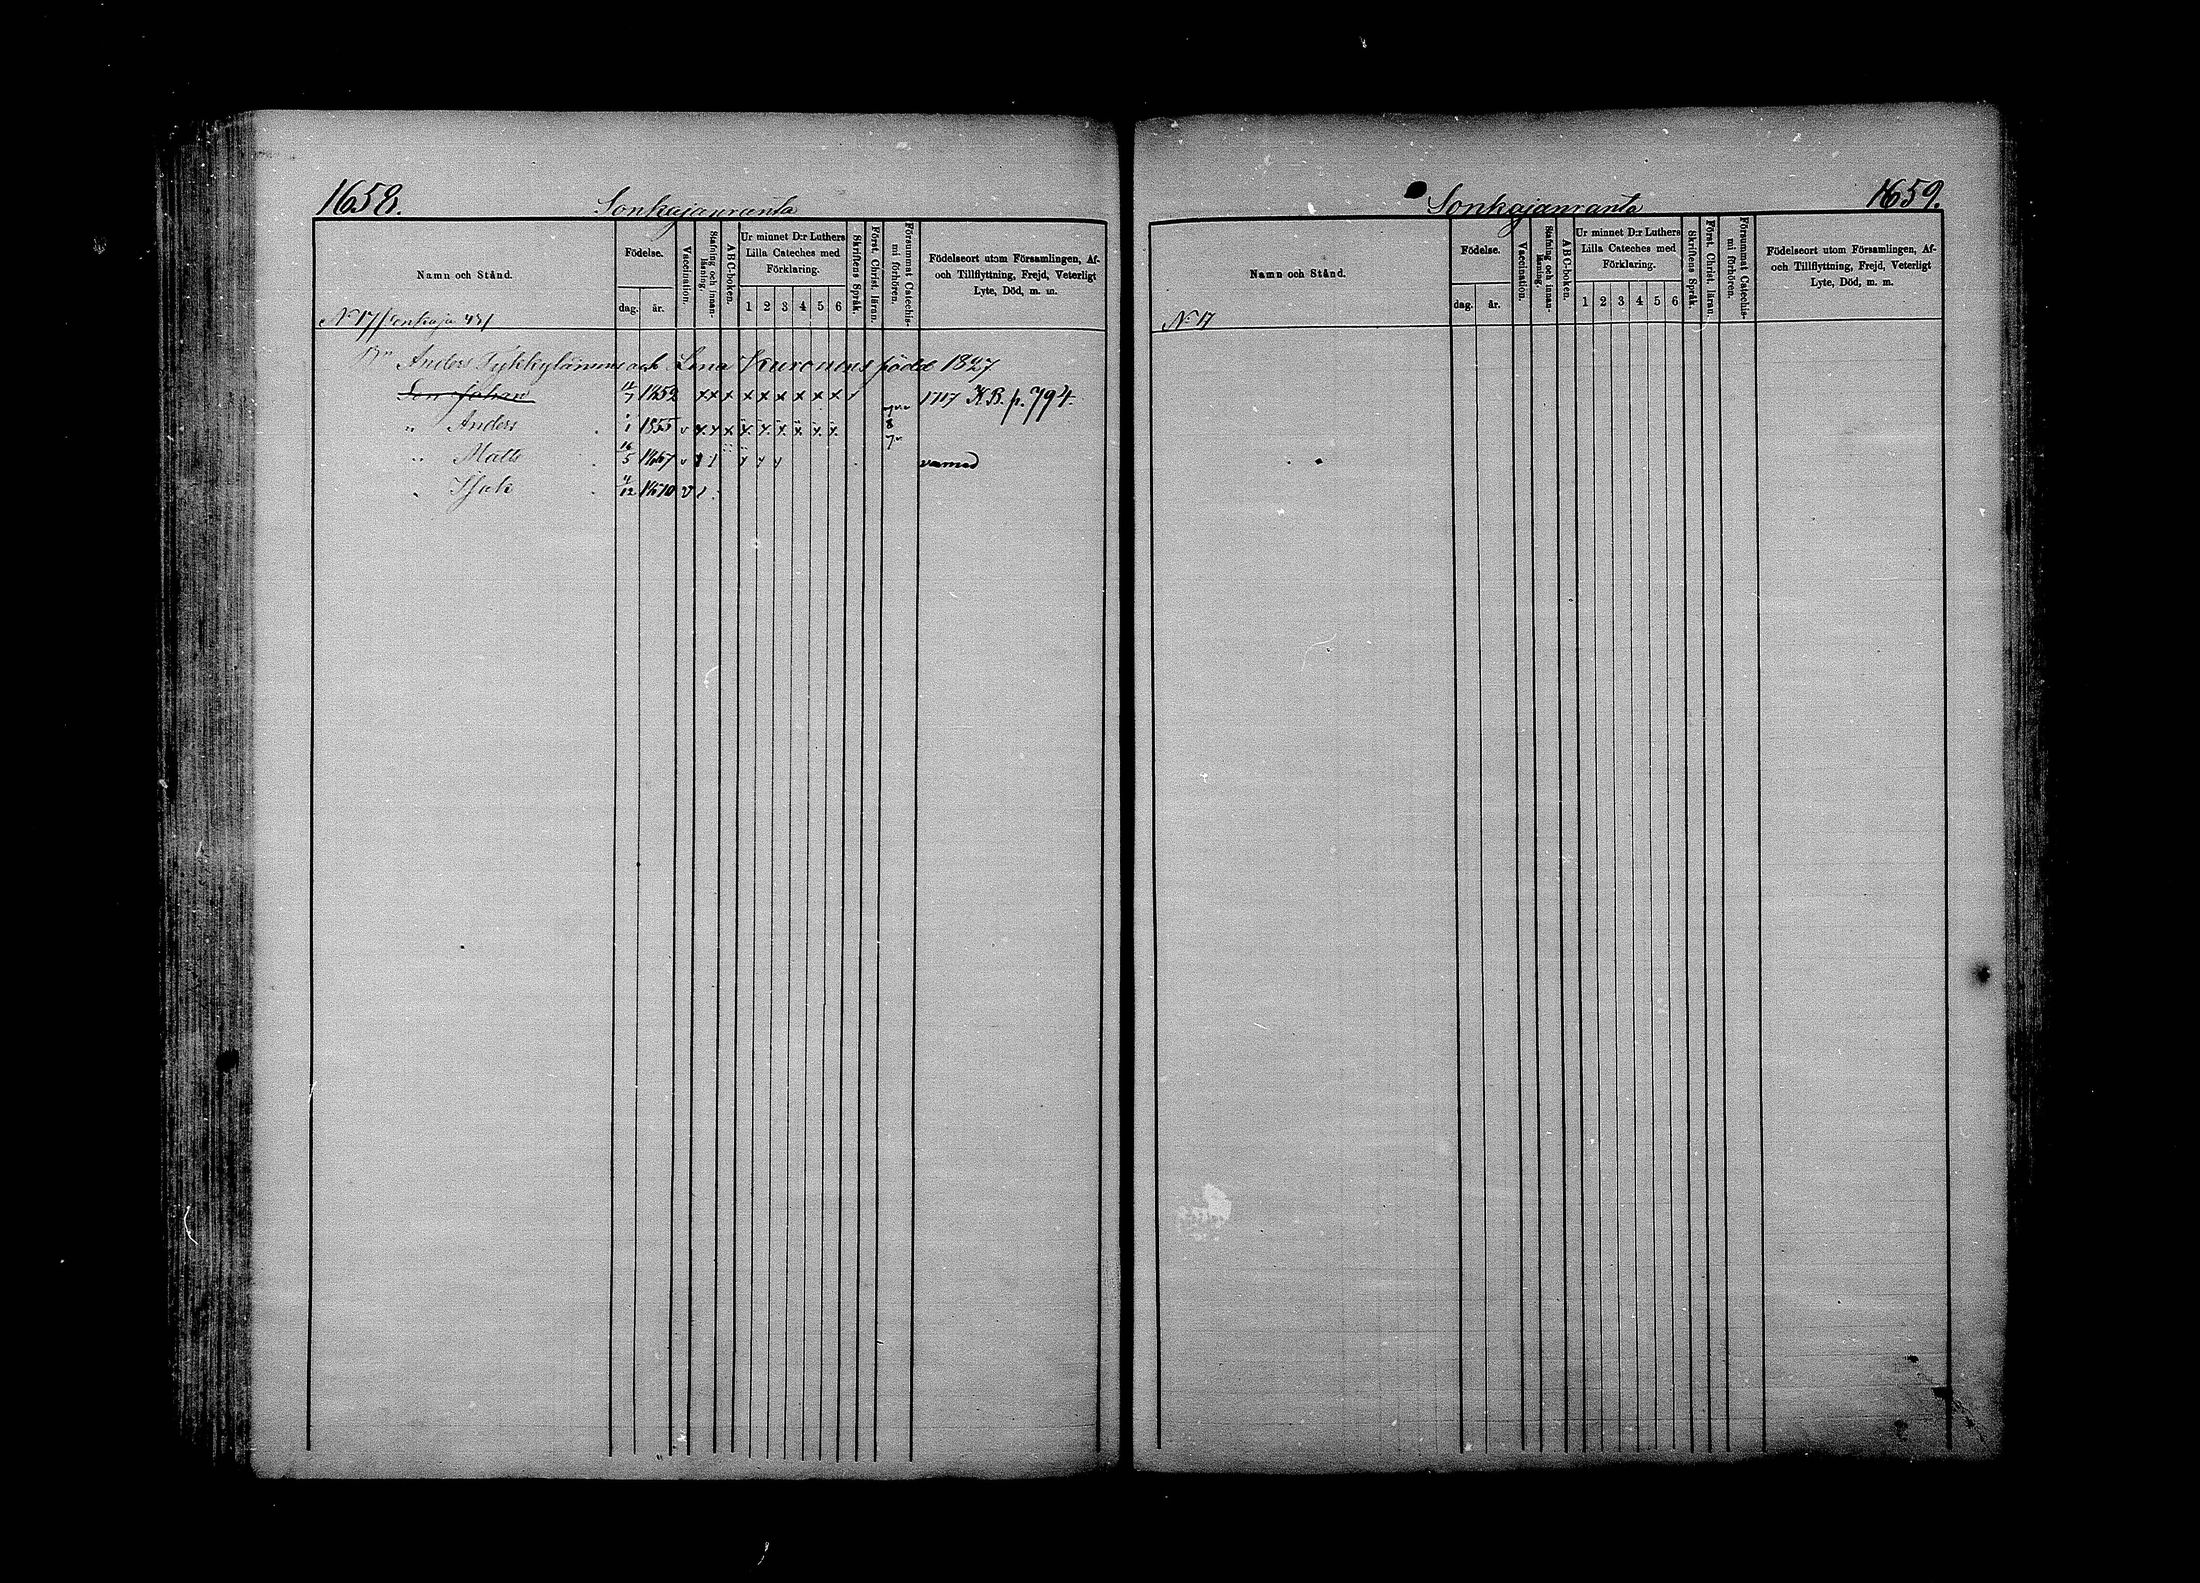 1658.
Sonkajanranta
Namn och Stånd.
Födelse.
dag. år.
Vaccination.
Stafning och innan-läsning.
ABC-boken.
Ur minnet D:r Luthers
Lilla Cateches med
Förklaring.
1 2 3 4 5 6
Skriftens Språk.
Först. Christ. läran.
Försummat Catechis-
mi förhören.
Födelseort utom Församlingen, Af-
och Tillflyttning, Frejd, Veterligt
Lyte, Död, m. m.
N 17
Anders Tykkyläinens och Lena Kuronens födde 1827
Son Johan 1852 x x x x x x x x x 1717 K.B. p. 794.
" Anders 1855 v x x x x x x x x x
" Matts 16/5 1867 v
" Isak 4/12 1870 v
Sonkajanranta
1659.
Namn och Stånd.
Födelse.
dag. år.
Vaccination.
Stafning och innan-läsning.
ABC-boken.
Ur minnet D:r Luthers
Lilla Cateches med
Förklaring.
1 2 3 4 5 6
Skriftens Språk.
Först. Christ. läran.
Försummat Catechis-
mi förhören.
Födelseort utom Församlingen, Af-
och Tillflyttning, Frejd, Veterligt
Lyte, Död, m. m.
N 17